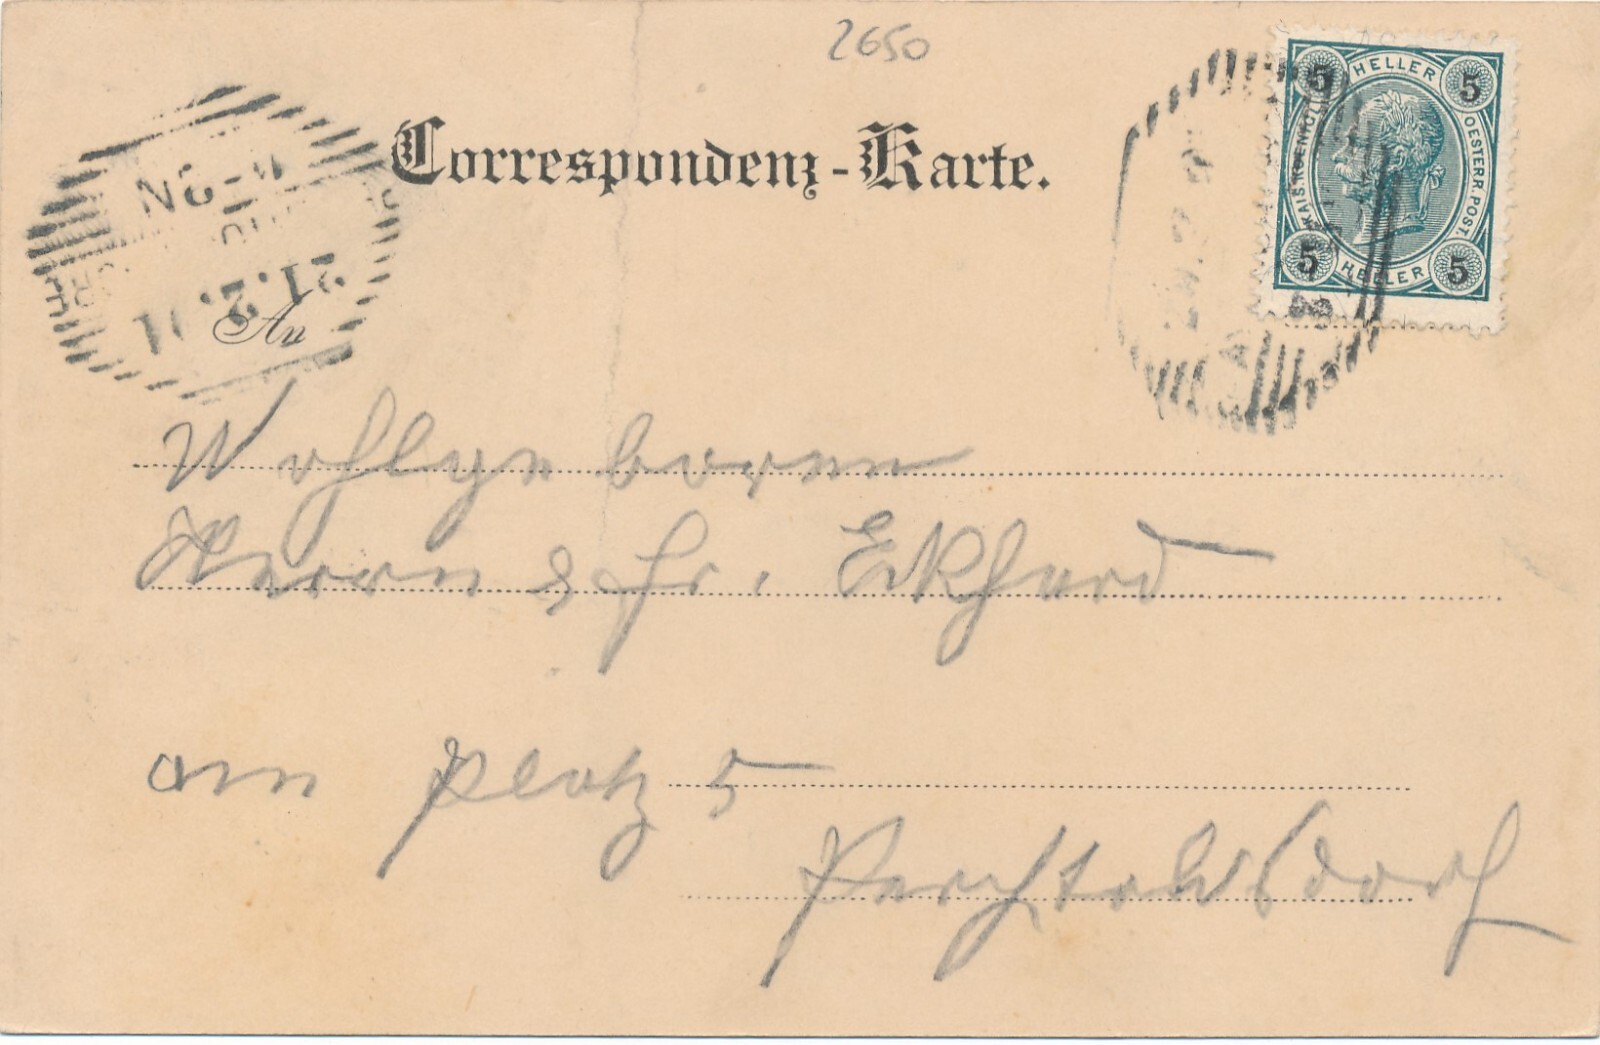 2650
Correspondenz-Karte.
5 HELLER 5
KAIS. KOENIGL. OESTERR. POST.
5 HELLER 5
21.2.
An
Wohlgeboren
Herrn & Fr. Ekhard
am Platz 5
Perchtoldsdorf